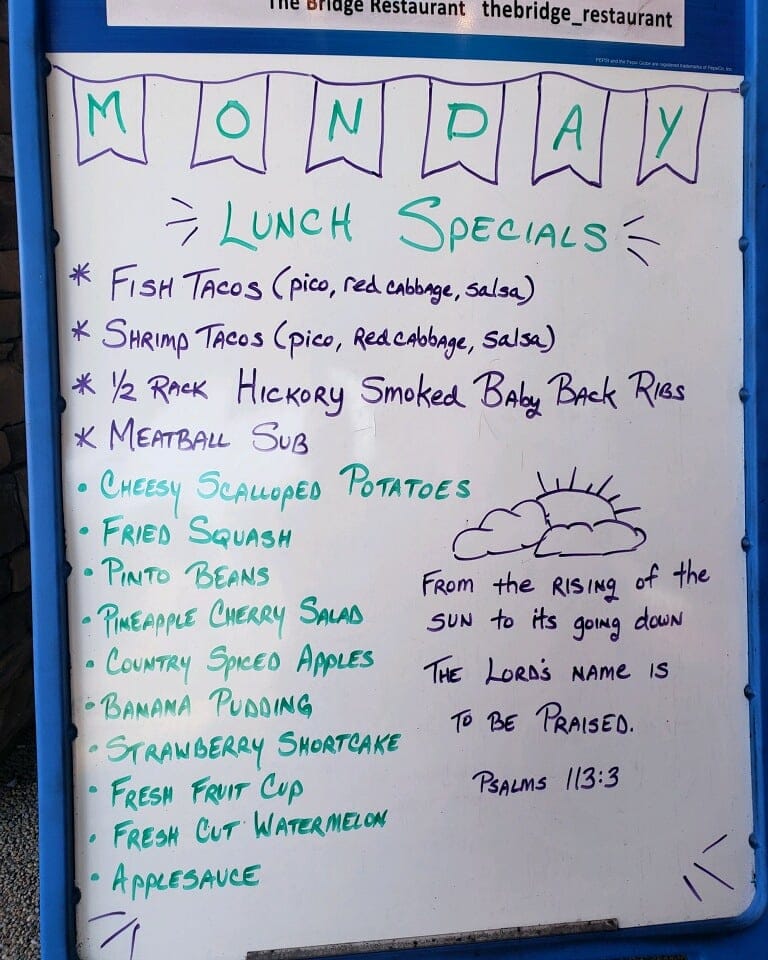 The Bridge Restaurant thebridge_restaurant
PEPSI and the Pepsi Globe are registered trademarks of PepsiCo, Inc.
MONDAY
LUNCH SPECIALS
* FISH TACOS (pico, red cabbage, salsa)
* SHRIMP TACOS (pico, Red cabbage, salsa)
* 1/2 RACK HICKORY Smoked Baby Back RIBS
* MEATBALL SUB
• CHEESY SCALLOPED POTATOES
• FRIED SQUASH
• PINTO BEANS
• PINEAPPLE CHERRY SALAD
• COUNTRY SPICED APPLES
• BANANA PUDDING
• STRAWBERRY SHORTCAKE
• FRESH FRUIT CUP
• FRESH CUT WATERMELON
• APPLESAUCE
FROM the RISING of the
SUN to its going down
THE LORD'S NAME IS
TO BE PRAISED.
PSALMS 113:3